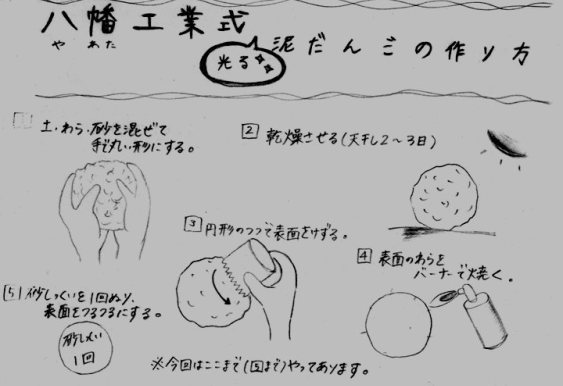 八幡工業式
やわた
光る
泥だんごの作り方
1 土・わら・砂を混ぜて
手で丸い形にする。
2 乾燥させる(天干し2〜3日)
3 円形のつつで表面をけずる。
4 表面のわらを
バーナーで焼く。
5 砂しっくいを1回ぬり、
表面をつるつるにする。
砂しっくい
1回
※今回はここまで(5まで)やってあります。